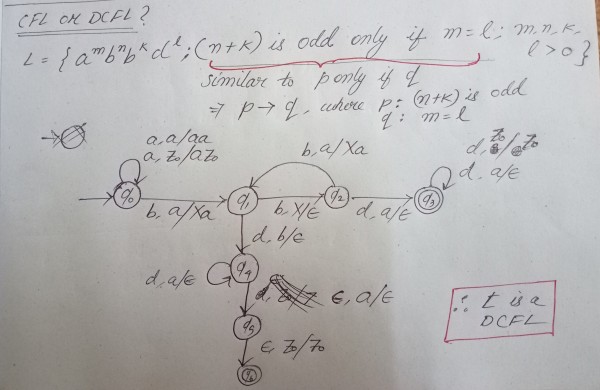 CFL or DCFL?
L = { a^m b^n b^k d^l ; (n+k) is odd only if m = l ; m, n, k, l > 0 }
similar to p only if q
⇒ p → q, where p : (n+k) is odd
q : m = l
a, a/aa
a, Z₀/aZ₀
b, a/Xa
d, Z₀/Z₀
d, a/ε
q₀
q₁
q₂
q₃
b, a/Xa
b, X/ε
d, a/ε
d, b/ε
d, a/ε
q₄
ε, a/ε
q₅
ε, Z₀/Z₀
∴ L is a
DCFL